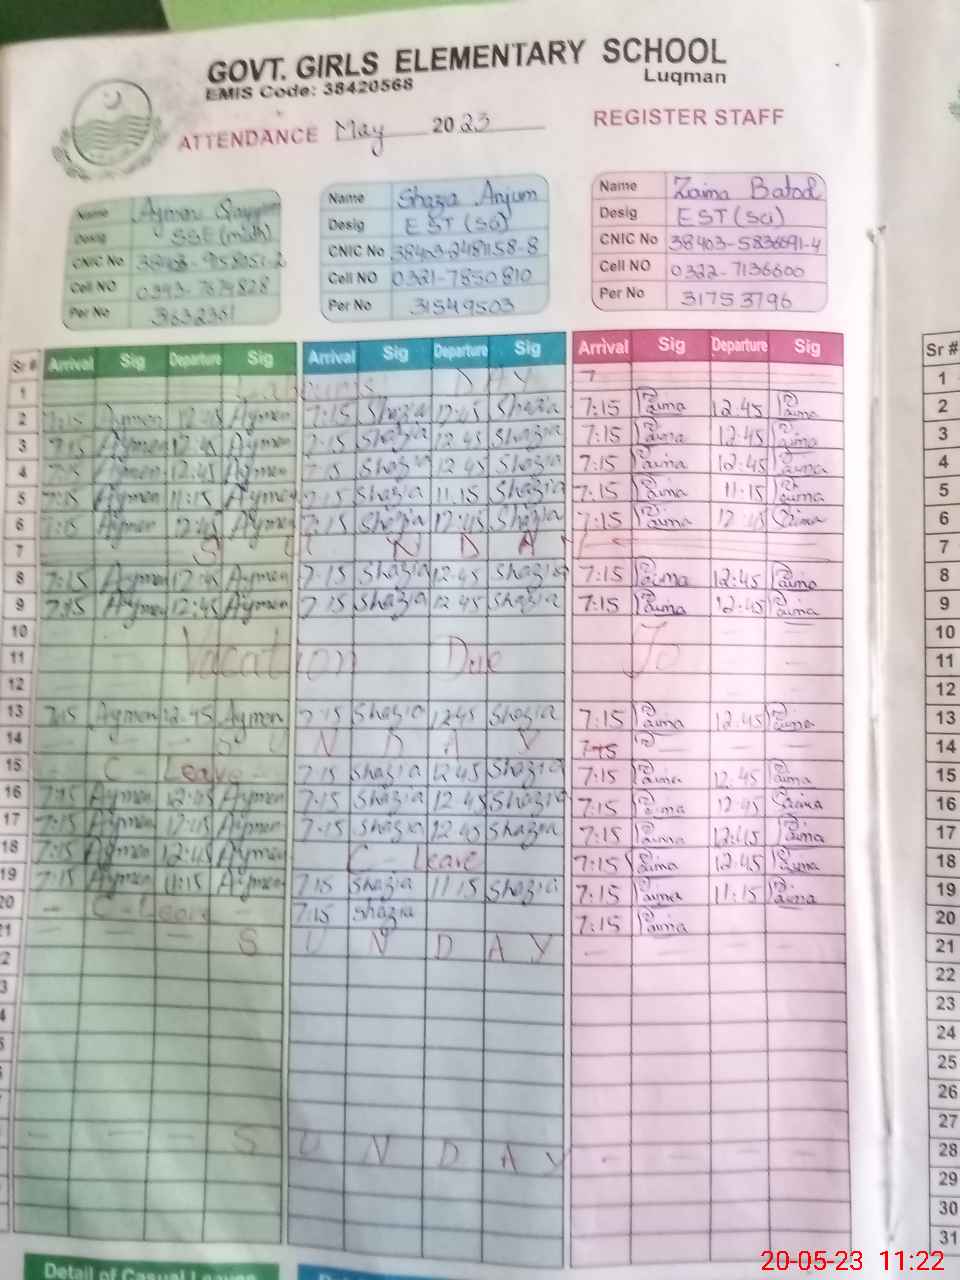 GOVT. GIRLS ELEMENTARY SCHOOL
Luqman
EMIS Code: 38420568
ATTENDANCE May 2023 REGISTER STAFF
Name Aymen Name Shazia Anjum Name Zaima Batool
Desig SSE (math) Desig EST (sci) Desig EST (sci)
CNIC No CNIC No 38403-2481158-8 CNIC No 38403-5836691-4
Cell NO 0343-7679828 Cell NO 0321-7850810 Cell NO 0322-7136600
Per No Per No 31549503 Per No 31753796
Sr # Arrival Sig Departure Sig Arrival Sig Departure Sig Arrival Sig Departure Sig Sr #
1 Labour's DAY 7 1
2 7:15 Aymen 12:45 Aymen 7:15 Shazia 12:45 Shazia 7:15 Zaima 12:45 Zaima 2
3 7:15 Aymen 12:45 Aymen 7:15 Shazia 12:45 Shazia 7:15 Zaima 12:45 Zaima 3
4 7:15 Aymen 12:45 Aymen 7:15 Shazia 12:45 Shazia 7:15 Zaima 12:45 Zaima 4
5 7:15 Aymen 11:15 Aymen 7:15 Shazia 11:15 Shazia 7:15 Zaima 11:15 Zaima 5
6 7:15 Aymen 12:45 Aymen 7:15 Shazia 12:45 Shazia 7:15 Zaima 12:45 Zaima 6
7 S U N D A Y 7
8 7:15 Aymen 12:45 Aymen 7:15 Shazia 12:45 Shazia 7:15 Zaima 12:45 Zaima 8
9 7:15 Aymen 12:45 Aymen 7:15 Shazia 12:45 Shazia 7:15 Zaima 12:45 Zaima 9
10 10
11 Vacation Due To 11
12 12
13 7:15 Aymen 12:45 Aymen 7:15 Shazia 12:45 Shazia 7:15 Zaima 12:45 Zaima 13
14 S U N D A Y 7:15 14
15 C - Leave 7:15 Shazia 12:45 Shazia 7:15 Zaima 12:45 Zaima 15
16 7:15 Aymen 12:45 Aymen 7:15 Shazia 12:45 Shazia 7:15 Zaima 12:45 Zaima 16
17 7:15 Aymen 12:45 Aymen 7:15 Shazia 12:45 Shazia 7:15 Zaima 12:45 Zaima 17
18 7:15 Aymen 12:45 Aymen C - Leave 7:15 Zaima 12:45 Zaima 18
19 7:15 Aymen 11:15 Aymen 7:15 Shazia 11:15 Shazia 7:15 Zaima 11:15 Zaima 19
20 C - Leave 7:15 Shazia 7:15 Zaima 20
21 S U N D A Y 21
22
23
24
25
26
27
S U N D A Y 28
29
30
31
Detail of Casual Leaves
20-05-23 11:22